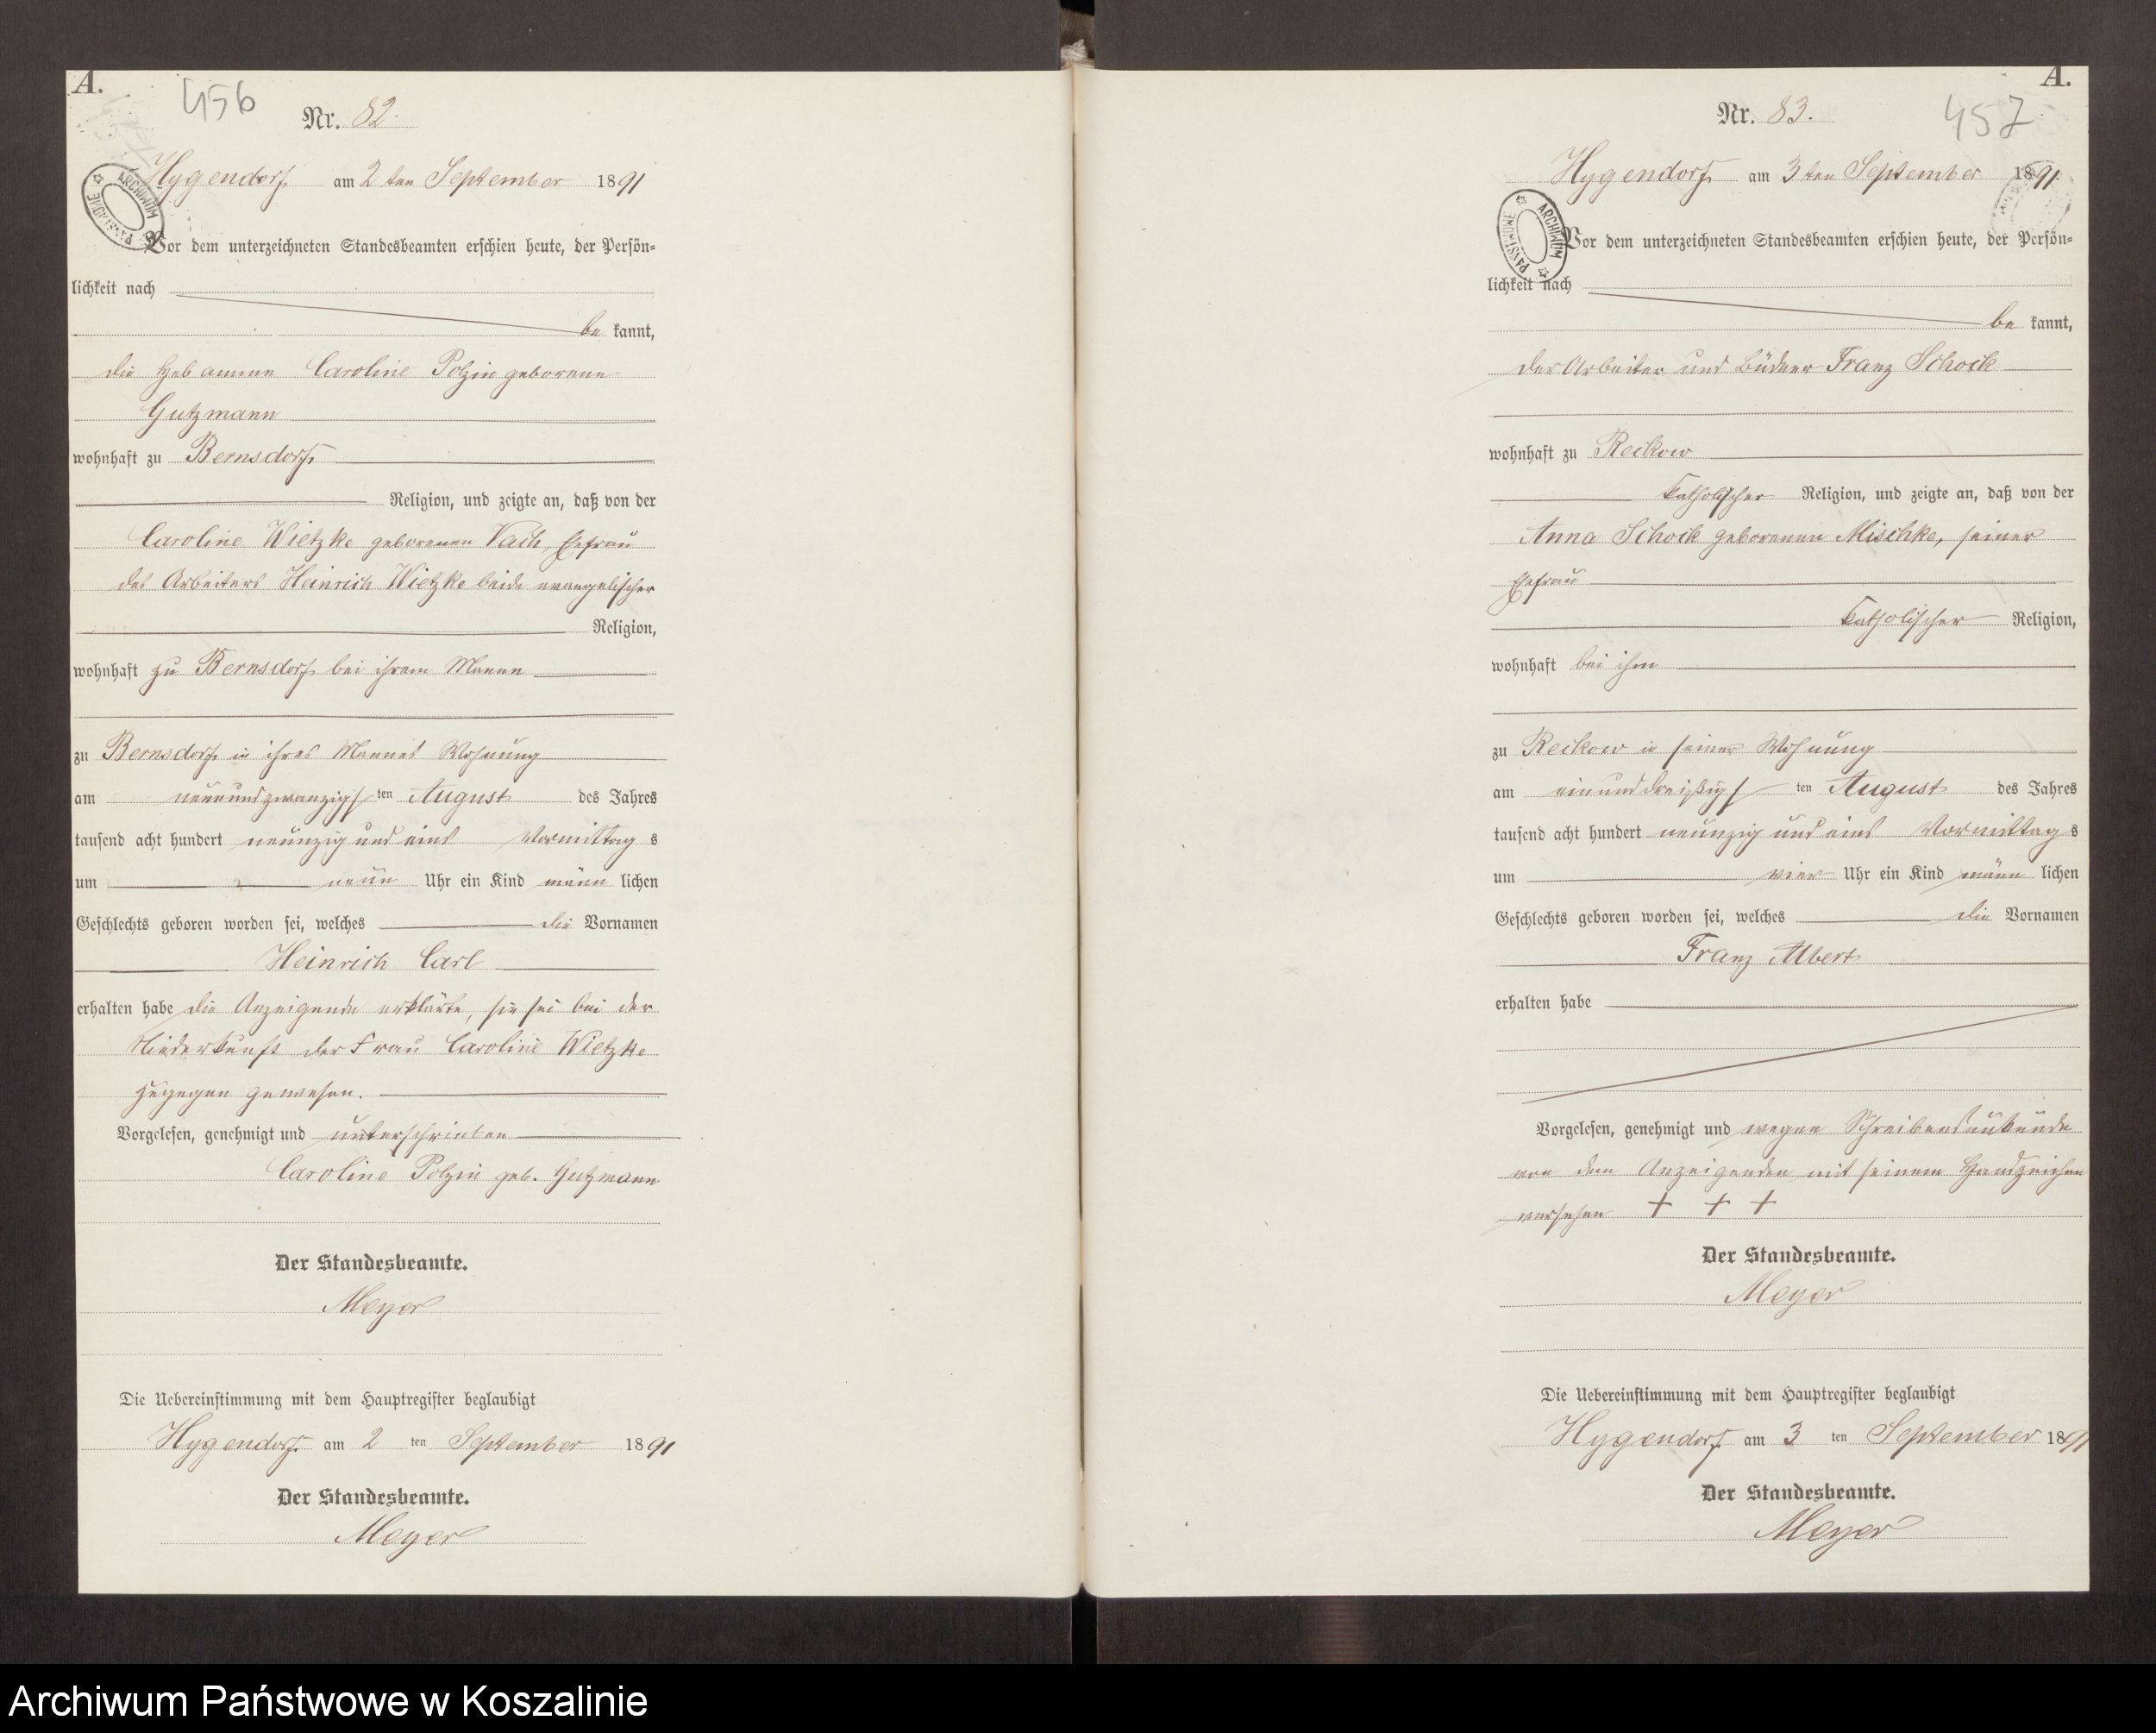 A.
456
Nr. 82.
Hygendorf am 2 ten September 1891
ARCHIWUM PAŃSTWOWE
Vor dem unterzeichneten Standesbeamten erschien heute, der Persön=
lichkeit nach
be kannt,
die Hebamme Caroline Polzin geborene
Gutzmann
wohnhaft zu Bernsdorf
Religion, und zeigte an, daß von der
Caroline Wietzke geborenen Vach, Ehefrau
des Arbeiters Heinrich Wietzke beide evangelischer
Religion,
wohnhaft zu Bernsdorf bei ihrem Manne
zu Bernsdorf in ihres Mannes Wohnung
am neunundzwanzigsten August des Jahres
tausend acht hundert neunzig und eins Vormittags
um neun Uhr ein Kind männlichen
Geschlechts geboren worden sei, welches die Vornamen
Heinrich Carl
erhalten habe die Anzeigende erklärte, sie sei bei der
Niederkunft der Frau Caroline Wietzke
zugegen gewesen.
Vorgelesen, genehmigt und unterschrieben
Caroline Polzin geb. Gutzmann
Der Standesbeamte.
Meyer
Die Uebereinstimmung mit dem Hauptregister beglaubigt
Hygendorf am 2 ten September 1891
Der Standesbeamte.
Meyer
A.
457
Nr. 83.
Hygendorf am 3 ten September 1891
ARCHIWUM PAŃSTWOWE
Vor dem unterzeichneten Standesbeamten erschien heute, der Persön=
lichkeit nach
be kannt,
der Arbeiter und Büdner Franz Schock
wohnhaft zu Reckow
katholischer Religion, und zeigte an, daß von der
Anna Schock geborenen Mischke, seiner
Ehefrau
katholischer Religion,
wohnhaft bei ihm
zu Reckow in seiner Wohnung
am einunddreißigsten August des Jahres
tausend acht hundert neunzig und eins Vormittags
um vier Uhr ein Kind männlichen
Geschlechts geboren worden sei, welches die Vornamen
Franz Albert
erhalten habe
Vorgelesen, genehmigt und wegen Schreibensunkunde
von dem Anzeigenden mit seinem Handzeichen
versehen + + +
Der Standesbeamte.
Meyer
Die Uebereinstimmung mit dem Hauptregister beglaubigt
Hygendorf am 3 ten September 1891
Der Standesbeamte.
Meyer
Archiwum Państwowe w Koszalinie